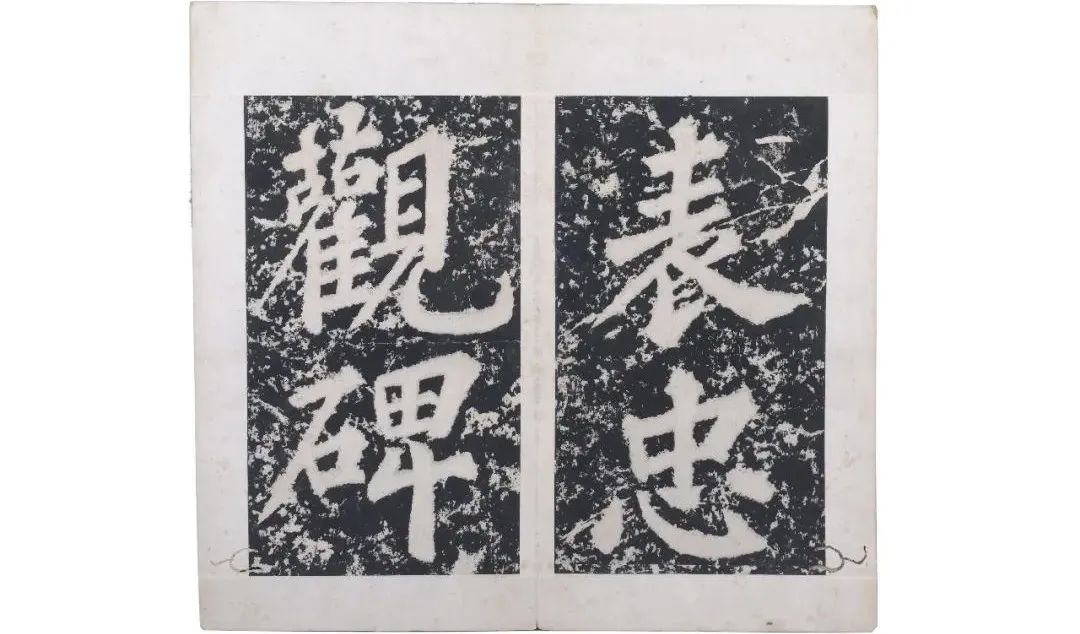 表忠
觀碑